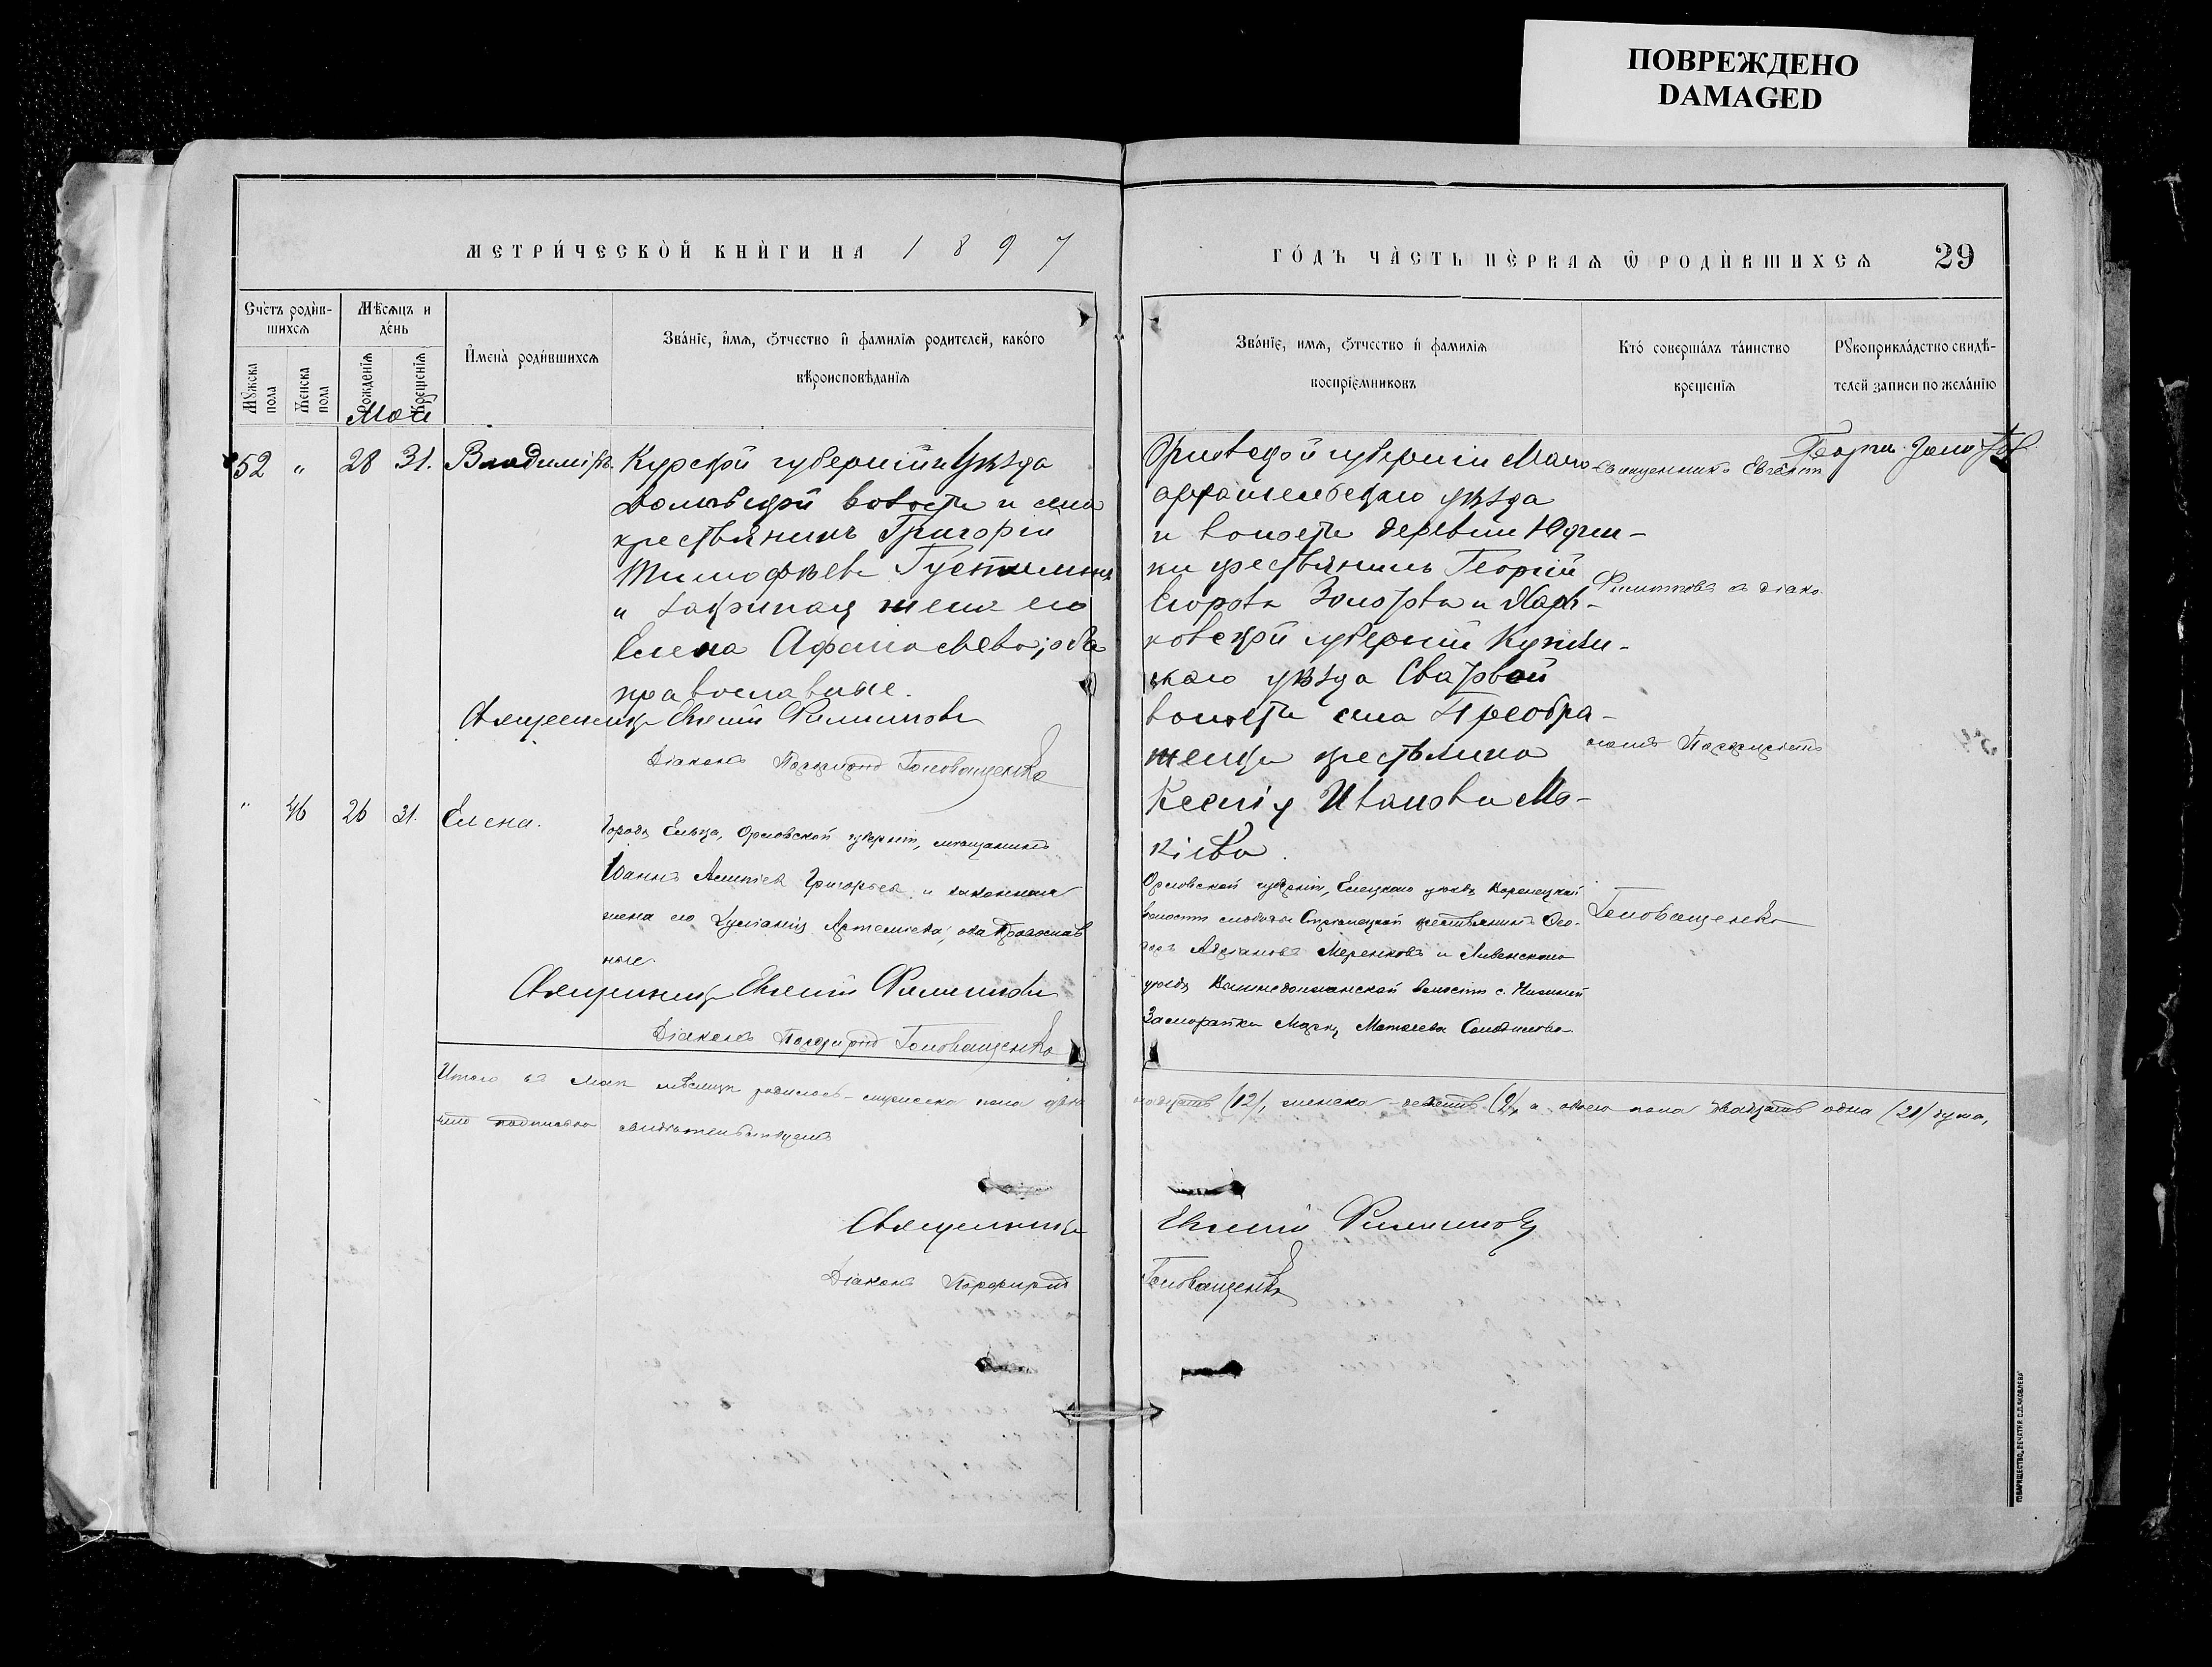 ПОВРЕЖДЕНО
DAMAGED
МЕТРИ́ЧЕСКОЙ КНИ́ГИ НА 1897
ГО́ДЪ ЧА́СТЬ ПЕ́РВАѦ Ѿ РОДИ́ВШИХСѦ 29
Сче́тъ роди́в-
шихсѧ
Мѣ́сѧцъ и
де́нь
Мꙋ́жска пола
Же́нска пола
Рожде́нїѧ
Креще́нїѧ
И҆мена̀ роди́вшихсѧ
Зва́нїе, и҆́мѧ, ѻ҆́тчество и҆ фами́лїѧ роди́телей, како́го
вѣроисповѣ́данїѧ
Зва́нїе, имѧ, ѻ҆́тчество и҆ фами́лїѧ
воспрїе́мниковъ
Кто́ соверша́лъ та́инство
креще́нїѧ
Рꙋкоприкла́дство свидѣ́-
телей записи по жела́нїю
Май
52 " 28 31. Владиміръ.
Курской губерніи уѣзда
волости и села
крестьянинъ Григорій
Тимофѣевъ
и законная жена его
Елена Афанасьева, оба
православные.
Священникъ Евгеній Филипповъ
Діаконъ Порфирій Головащенко
губерніи Мало-
архангельскаго уѣзда
и волости деревни Юдин-
ки крестьянинъ Георгій
Егоровъ Золотовъ и Харь-
ковской губерніи Купян-
скаго уѣзда Сватовой
волости села Преобра-
женка крестьянка
Ксенія Иванова Мо-
Священникъ Евгеній
Филипповъ съ діако-
номъ Порфиріемъ
Головащенко
Георгій Золотов
" 46 26 31. Елена.
Города Ельца, Орловской губерніи, мѣщанинъ
Іоаннъ Григорьевъ и законная
жена его Артеміева, оба православ
ные.
Священникъ Евгеній Филипповъ
Діаконъ Порфирій Головащенко
Орловской губерніи, Елецкаго уѣзда
волости слободы крестьянинъ Ѳео-
доръ Адріановъ Меренковъ и Ливенскаго
уѣзда волости с. Нижней
Матвеева
Итого въ Маѣ мѣсяцѣ родилось мужеска пола двѣ-
надцать (12), женска девять (9), а обоего пола двадцать одна (21) душа,
что подписью свидѣтельствуемъ
Священникъ Евгеній Филипповъ
Діаконъ Порфирій Головащенко
ТОВАРИЩЕСТВО „ПЕЧАТНЯ С.П.ЯКОВЛЕВА"